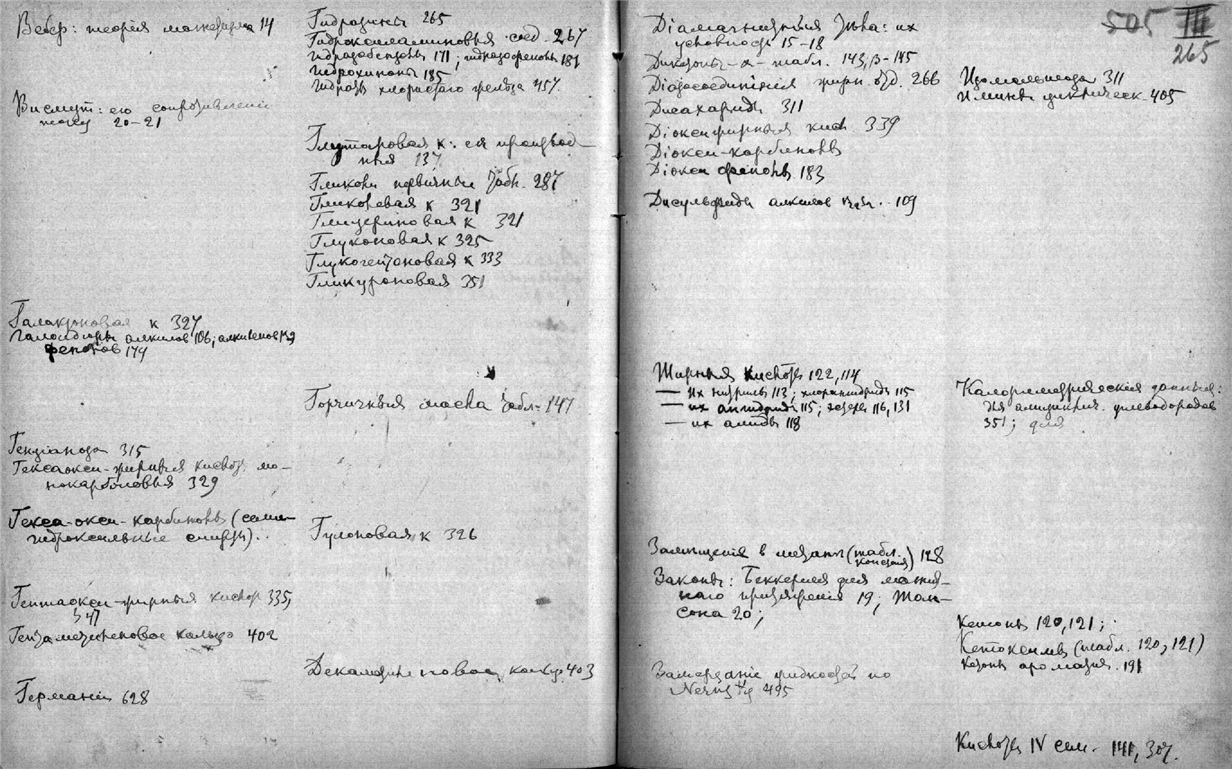 Вебер: теорія магнетизма 14
Висмут: его сопротивленіе
току 20–21
Галактоновая к 327
Галоидюры алкиловъ 106; алкиленовъ 129
фенолов 179
Генціаноза 315
Гексаокси-жирныя кислоты мо-
нокарбоновыя 329
Гекса-окси-карбинолы (семи-
гидроксильные спирты)..
Гептаокси-жирныя кислоты 335,
347
Гептаметиленовое кольцо 402
Германій 628
Гидразины 265
Гидроксиламиновыя соед. 267
гидразобензолъ 171; гидразофенолы 181
гидрохинонъ 185
гидразъ хлористаго железа 457.
Глутаровая к: ея производ-
ныя 137
Гликоли первичные табл. 287
Гликолевая к 321
Глицериновая к 321
Глуконовая к 325
Глукогептоновая к 333
Гликуроновая 351
Горчичныя масла табл. 147
Гулоновая к 326
Декаметиленовое кольцо 403
505 III
265
Діамагнитныя тѣла: их
15–18
Дикетоны – α – табл. 143, β – 145
Діазосоединенія жирн. ряд. 266
Дисахариды 311
Діоксижирныя кисл 339
Діокси-карбинолы
Діокси фенолы 183
Дисульфиды алкилов 109
Жирныя кислоты 122, 114
— Их нитрилы 113; хлорангидриды 115
— их ангидриды 115; эфиры 116, 131
— их амиды 118
Замѣщенія в метанѣ (табл.
) 128
Законы: Беккереля для магнит-
наго притяженія 19; Том-
сона 20;
Замерзаніе жидкостей по
Nernst'у 495
Изомальтоза 311
Имины циклическ. 405
Калориметрическія данныя
для ациклич. углеводородов
351; для
Кетоны 120, 121;
Кетоксимы (табл. 120, 121)
Кетоны ароматич. 191
Кислоты IV сем. 141, 307.